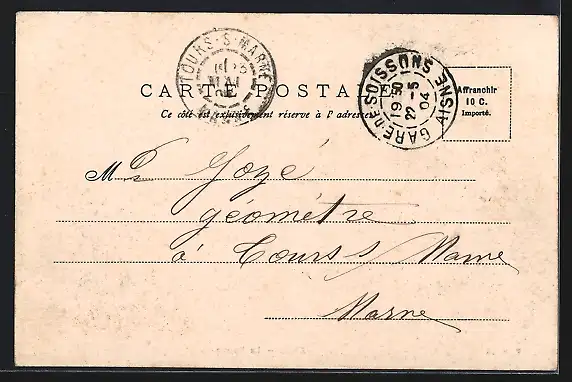 TOURS-S-MARNE
MAI
GARE DE SOISSONS
AISNE
19 30
2 -5
04
CARTE POSTALE
Ce côté est exclusivement réservé à l'adresse
Affranchir
10 C.
Importé.
M
géomètre
à Tours s Marne
Marne